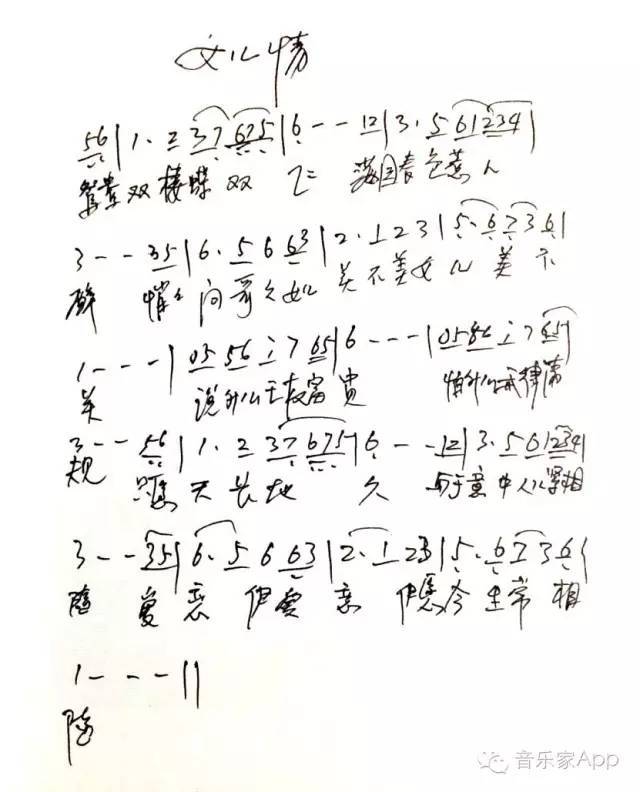 女儿情
56 | 1· 2 37 675 | 6 - - 12 | 3· 5 61 234 |
鸳鸯双栖蝶双飞 满园春色惹人
3 - - 35 | 6· 5 6 63 | 2· 1 2 3 | 5· 6 7 3 6 |
醉 悄悄问 美不美女儿美不
1 - - - | 03 56 i 7 65 | 6 - - - | 0586 i 7 657 |
美 说什么王权富贵 怕什么戒律清
3 - - 56 | 1· 2 37 675 | 6 - - 12 | 3· 5 61 234 |
规 只愿天长地久 与 意中人儿紧相
3 - - 35 | 6· 5 6 63 | 2· 1 23 | 5· 6 7 3 6 |
随 爱恋伊爱恋伊愿今生常相
1 - - - ||
随
音乐家App